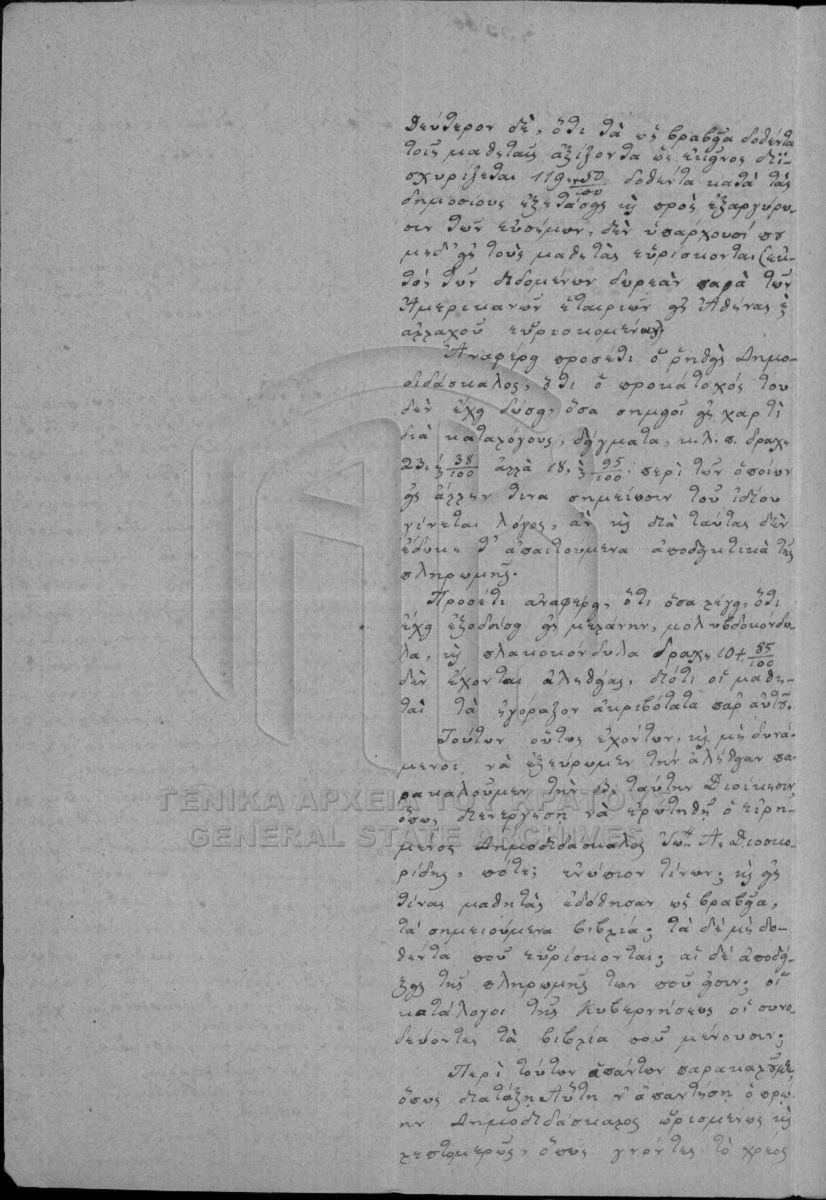 δεύτερον δὲ, ὅτι τὰ ὡς βραβεῖα δοθέντα
τοῖς μαθηταῖς ἀξίζοντα ὡς ἐκεῖνος διϊ-
σχυρίζεται 119,+50/100 δοθέντα κατὰ τὰς
δημοσίους ἐξετάσεις κ̀ πρὸς ἐξαργύρω-
σιν τῶν εὐσήμων, δὲν ὑπάρχουσί που
μεδ' εἰς τοὺς μαθητὰς εὑρίσκονται (ἐκ-
τὸς τῶν διδομένων δωρεὰν παρὰ τῶν
Ἀμερικανῶν ἑταιριῶν εἰς Ἀθήνας ἢ
ἀλλαχοῦ εὑρισκομένων)
Ἀναφέρει προσέτι ὁ ῥηθεὶς Δημο-
διδάσκαλος, ὅτι ὁ προκάτοχός του
δὲν ἔχει δώσει, ὅσα σημειοῖ εἰς χαρτὶ
διὰ καταλόγους, δείγματα, κ.λ.π. δραχ.
23, 38/100 ἀλλὰ 18, 95/100: περὶ τῶν ὁποίων
εἰς ἄλλην τινα σημείωσιν τοῦ ἰδίου
γίνεται λόγος, ἂν κ̀ διὰ ταύτας δὲν
ἔδωκε τ' ἀπαιτούμενα ἀποδεικτικὰ τῆς
πληρωμῆς.
Προσέτι ἀναφέρει, ὅτι ὅσα λέγει, ὅτι
ἔχει ἐξοδεύσει εἰς μελάνην, μολυβδοκόνδυ-
λα, κ̀ πλακοκόνδυλα δραχ. 104 85/100
δὲν ἔχονται ἀληθείας, διότι οἱ μαθη-
ταὶ τὰ ἠγόραζον ἀκριβότατα παρ' αὐτοῦ.
Τούτων οὕτως ἐχόντων, κ̀ μὴ δυνά-
μενοι νὰ ἐξεύρωμεν τὴν ἀλήθειαν πα-
ρακαλοῦμεν τὴν Β. ταύτην Διοίκησιν
ὅπως διενεργήση νὰ ἐρωτηθῇ ὁ εἰρη-
μένος Δημοδιδάσκαλος Ἰω. Α. Διοσκο-
ρίδης, πότε; ἐνώπιον τίνων; κ̀ εἰς
τίνας μαθητὰς ἐδόθησαν ὡς βραβεῖα,
τὰ σημειούμενα βιβλία; τὰ δὲ μὴ δο-
θέντα ποῦ εὑρίσκονται; αἱ δὲ ἀποδεί-
ξεις τῆς πληρωμῆς των ποῦ εἰσιν; οἱ
κατάλογοι τῆς Κυβερνήσεως οἱ συνο-
δεύοντες τὰ βιβλία ποῦ μένουσιν;
Περὶ τούτων ἁπάντων παρακαλεῖσθε
ὅπως διατάξῃ Αὕτη ν' ἀπαντήσῃ ὁ πρώ-
ην Δημοδιδάσκαλος ὡρισμένως κ̀
λεπτομερῶς, ὅπως γνόντες τὸ χρέος
ΓΕΝΙΚΑ ΑΡΧΕΙΑ ΤΟΥ ΚΡΑΤΟΥΣ
GENERAL STATE ARCHIVES